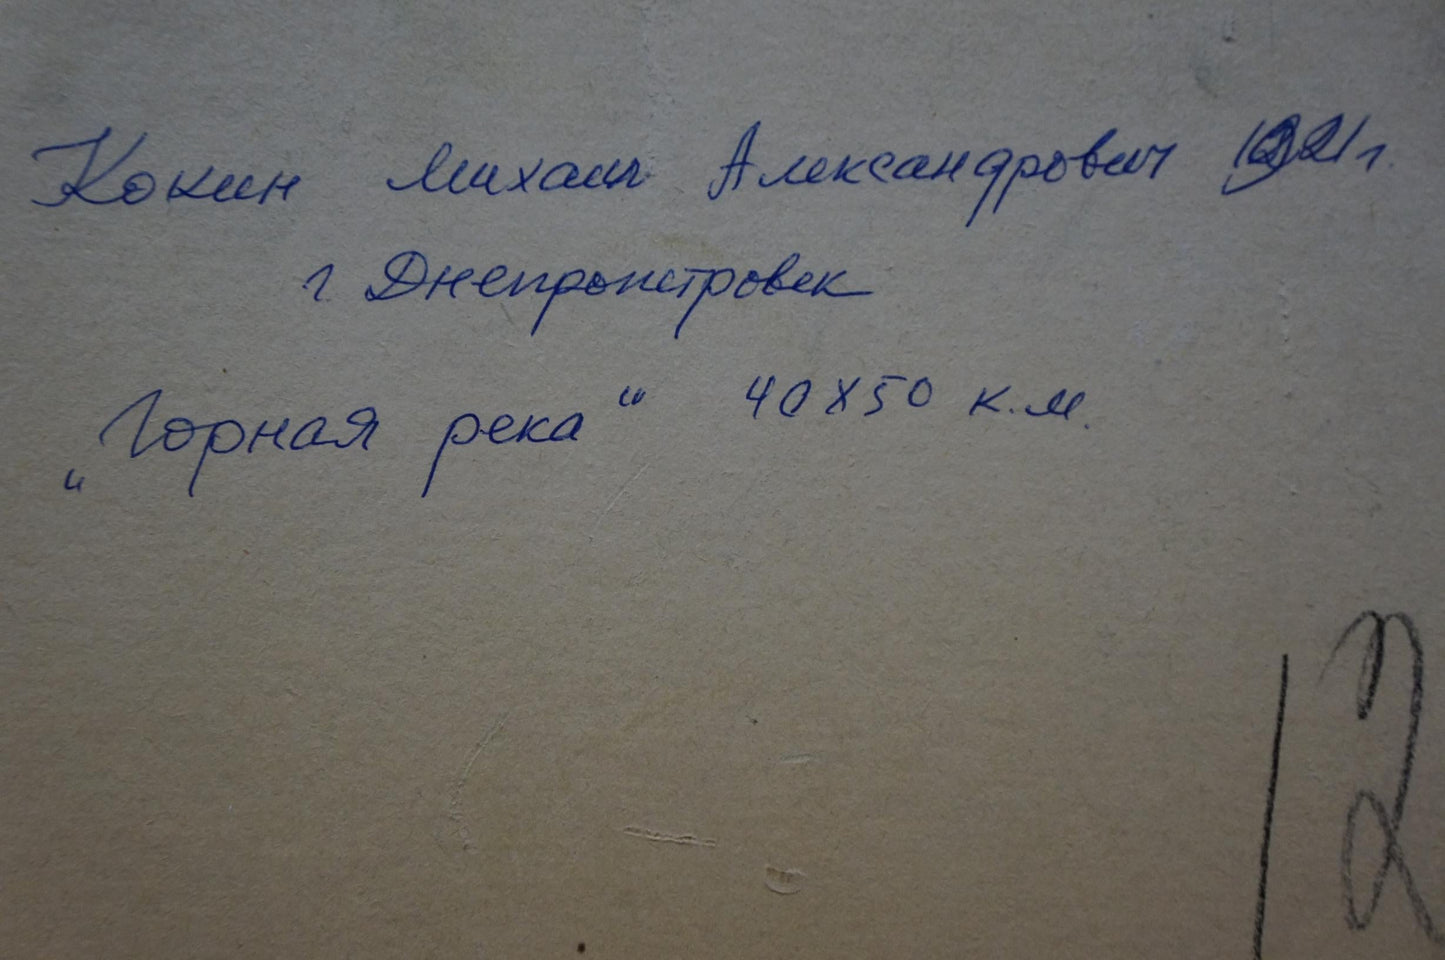 Кокин Михаил Александрович 1921г.
г Днепропетровск
„Горная река“ 40х50 к.м.
12